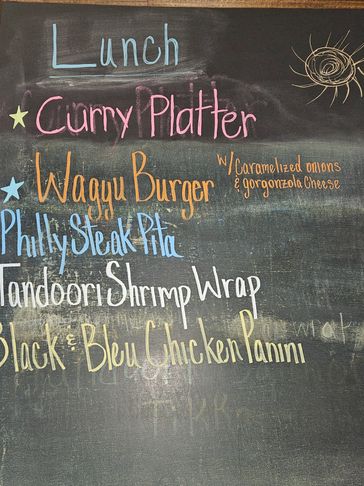 Lunch
Curry Platter
Wagyu Burger
w/ Caramelized onions
& gorgonzola Cheese
Philly Steak Pita
Tandoori Shrimp Wrap
Black & Bleu Chicken Panini